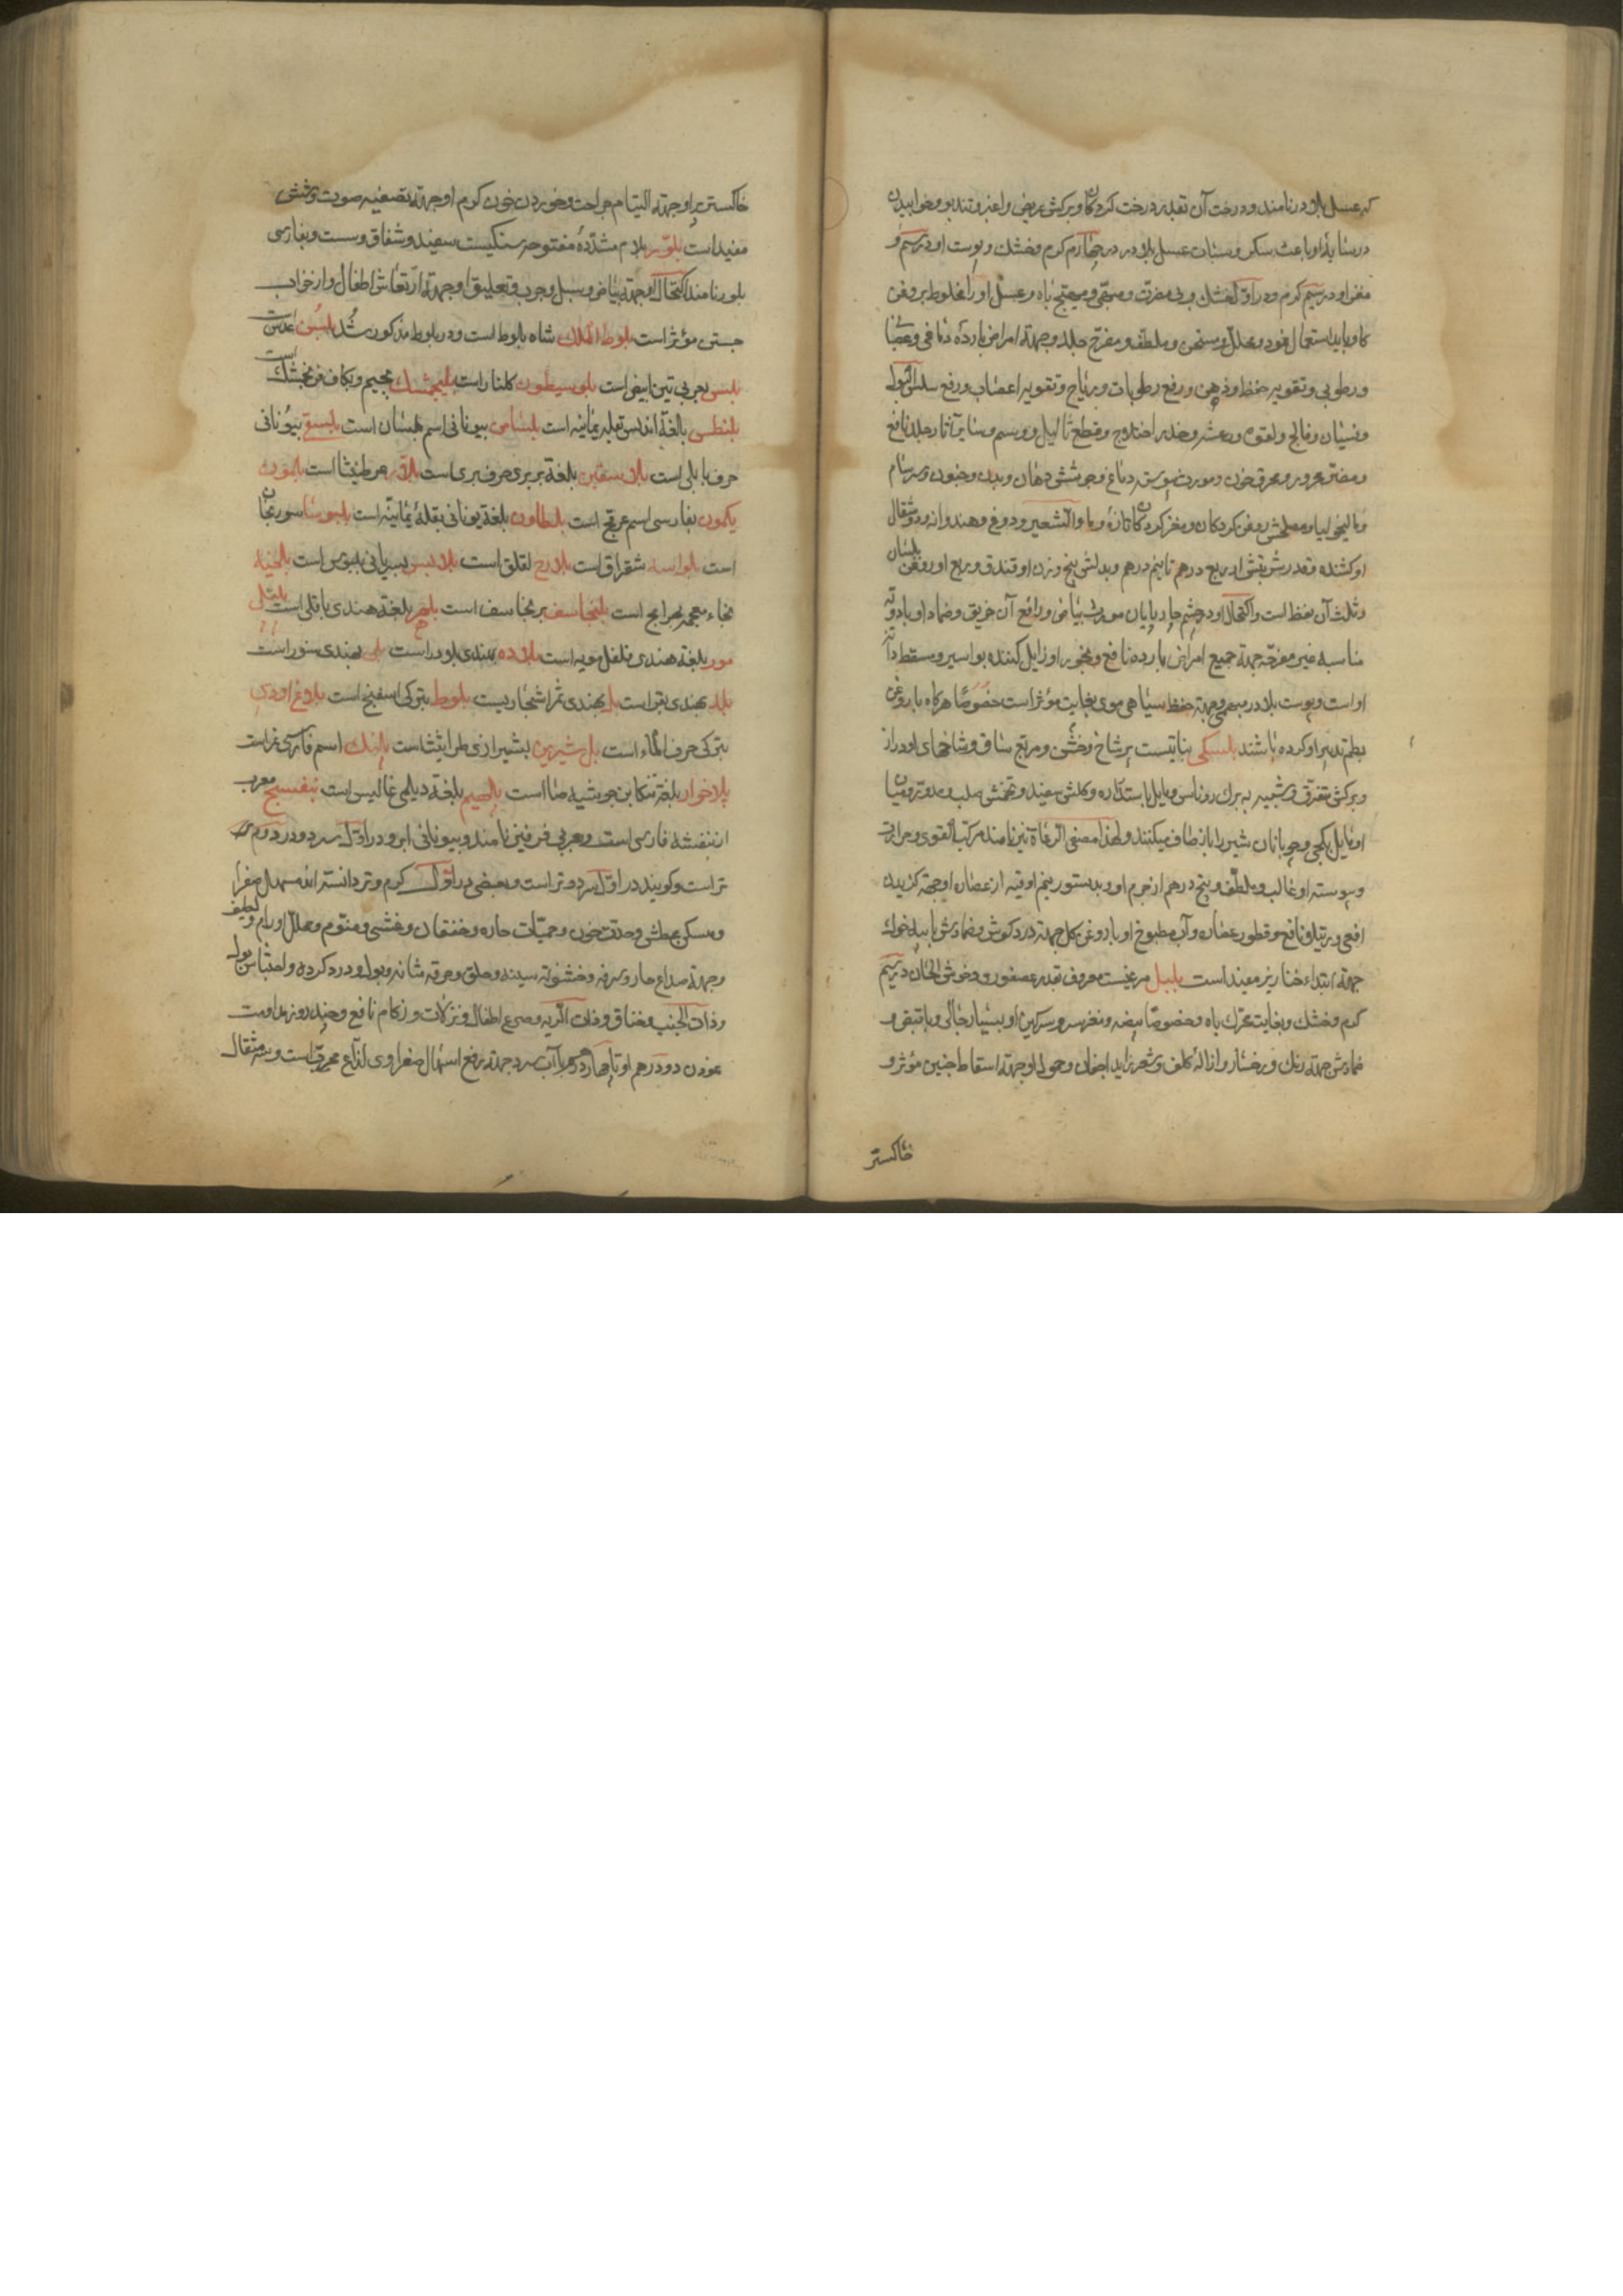 که عسل بلادر نامند و درخت آن بقدر درخت کردکان و برکش عریض و اغبر و تندبو و خوابیدن
در سایهٔ او باعث سکر و سبات عسل بلادر در چهارم کرم و خشک و پوست او در سیم و
مغز او در سیم کرم و در اول خشک و بی مضرت و مبهی و مهیج باه و عسل او را مخلوط بروغن
کاو باید استعمال نمود و محلل و مسخن و ملطف و مقرح جلد و جهة امراض بارده دماغی و عصبانی
و رطوبی و تقویه حفظ و ذهن و رفع رطوبات و ریاح و تقویه اعصاب و رفع سلس البول
و نسیان و فالج و لقوه و رعشه و خدر و اختلاج و قطع ثالیل و وسم و سایر آثار جلد نافع
و مضر محرور و محرق خون و مورث یبوست دماغ و جوشش دهان و بدن و جنون و سرسام
و مالیخولیا و مصلحش روغن کردکان و مغز کردکان تازه و ماء الشعیر و دوغ و هندوانه و دو مثقال
او کشنده و قدر شربتش از ربع درهم تا نیم درهم و بدلش پنج وزن او فندق و ربع او روغن بلسان
و ثلث آن نفط است و اکتحال او در چشم چارپایان مورث بیاض و رافع آن خریق و ضماد او با ادویه
مناسبه غیر مقرحه جهة جمیع امراض بارده نافع و بخور او زایل کننده بواسیر و مسقط دانه
او است و پوست بلادر مبهی و جهة حفظ سیاهی موی بغایت مؤثر است خصوصا هرکاه با روغن
بطم تدبیر او کرده باشند بلسکی نباتیست پر شاخ و خشن و مربع ساق و شاخهای او دراز
و برکش متفرق و شبیه به برک روناس و مایل باستداره و کلش سفید و تخمش صلب و مدور و میان
او مایل بکجی و چوپانان شیر را باز صاف میکنند و لهذا مصفی الرعاة نیز نامند مرکب القوی و حرارت
و یبوست او غالب و ملطف و پنج درهم از جرم او و بدستور نیم اوقیه از عصاره او جهة کزیدن
افعی و رتیلا نافع و قطور عصاره و آب مطبوخ او با روغن کل جهة درد کوش و ضمادش با پیه خوک
جهة ابتداء خنازیر مفید است بلبل مرغیست معروف بقدر عصفور و خوش الحان در سیم
کرم و خشک و بغایت محرک باه و خصوصا بیضه و مغز سر و سرکین او بسیار جالی و با تبقی و
ضمادش جهة رنک رخسار و ازاله کلف و شعر زاید اجفان و حمول او جهة اسقاط جنین مؤثر و
خاکستر
خاکستر پر او جهة التیام جراحت و خوردن خون کرم او جهة تصفیه صوت و شش
مفید است بلور بلام مشدده مفتوحه سنکیست سفید و شفاف و سست و بفارسی
بلور نامند اکتحال او جهة بیاض و سبل و جرب و تعلیق او جهة ارتعاش اطفال و از خواب
جستن مؤثر است بلوط الملک شاه بلوط است و در بلوط مذکور شد بلسن عدس است
بلس بعربی تین ابیض است بلوسیطون کلنار است بلنجمشک بجیم و بکاف فرنجمشک
بلنطس بالغة اندلس بقله یمانیه است بلسامن بیونانی اسم بلسان است بلسبتق بیونانی
حرف بابلی است بلاسفین بلغة بربری حرف بری است بلاقر هر طنیثا است بلمون
یکمون بفارسی اسم عرفج است بلطاون بلغة یونانی بقلهٔ یمانیه است بلبوسا سورنجان
است بلواسه شقراق است بلارج لقلق است بلادبس بسریانی بلبوس است بلخیه
بخاء معجمه بهرامج است بلنجاسف برنجاسف است بلهر بلغة هندی باقلی است بلبل
مور بلغة هندی فلفل مویه است بلاده بهندی بلادر است بلی بهندی سنور است
بلد بهندی بقر است بل بهندی ثمر اشجاریست بلوط بترکی اسفنج است بلاوغ اودی
بترکی حرف الماء است بل شیرین بشیرازی طراثیث است بالنک اسم فارسی غراست
پلاخوار بلغة تنکابن جوشیصا است بلهیم بلغة دیلمی غالیس است بنفسج معرب
از بنفشه فارسی است و بعربی فرفیر نامند و بیونانی ابر و در اول سرد و در دوم
تر است و کویند در اول سرد و تر است و بعضی در اول کرم و تر دانسته اند مسهل صفرا
و مسکن عطش و حدت خون و حمیات حاره و خفقان و غشی و منوم و محلل اورام و لطیف
و جهة صداع حار و سرفه و خشونة سینه و حلق و حرقه مثانه و بول و درد کرده و احتباس بول
و ذات الجنب و خناق و ذات الریه و صرع اطفال و نزلات و زکام نافع و چند روز مداومت
نمودن دو درهم او تا چهار درهم با آب سرد جهة رفع اسهال صفراوی لذاع مجرب است و سه مثقال